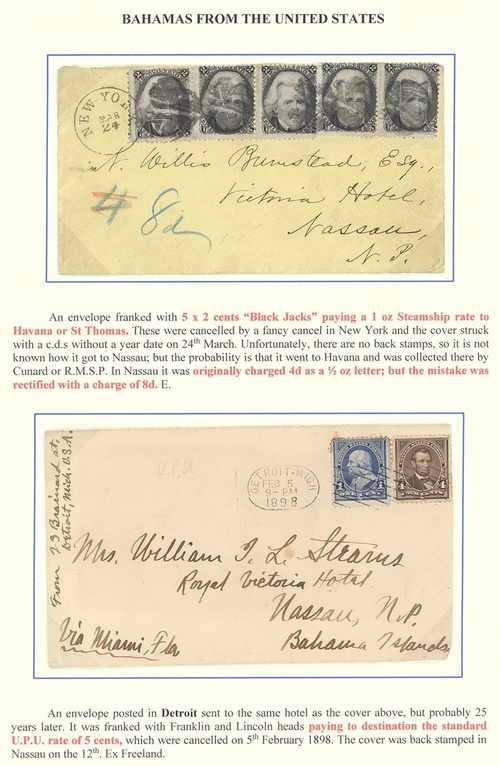 BAHAMAS FROM THE UNITED STATES
NEW-YORK
MAR
24
N. Willis Bumstead, Esq.,
Victoria Hotel,
Nassau,
N. P.
4 8d
An envelope franked with 5 x 2 cents “Black Jacks” paying a 1 oz Steamship rate to
Havana or St Thomas. These were cancelled by a fancy cancel in New York and the cover struck
with a c.d.s without a year date on 24th March. Unfortunately, there are no back stamps, so it is
not known how it got to Nassau; but the probability is that it went to Havana and was collected there by
Cunard or R.M.S.P. In Nassau it was originally charged 4d as a ½ oz letter; but the mistake was
rectified with a charge of 8d. E.
From 23 Brainard st,
Detroit, Mich. U.S.A.
U.P.U.
DETROIT, MICH
FEB 5
9-PM
1898
Mrs. William I. L. Stearns
Royal Victoria Hotel
Nassau, N.P.
Bahama Islands
Via Miami, Fla
An envelope posted in Detroit sent to the same hotel as the cover above, but probably 25
years later. It was franked with Franklin and Lincoln heads paying to destination the standard
U.P.U. rate of 5 cents, which were cancelled on 5th February 1898. The cover was back stamped in
Nassau on the 12th. Ex Freeland.